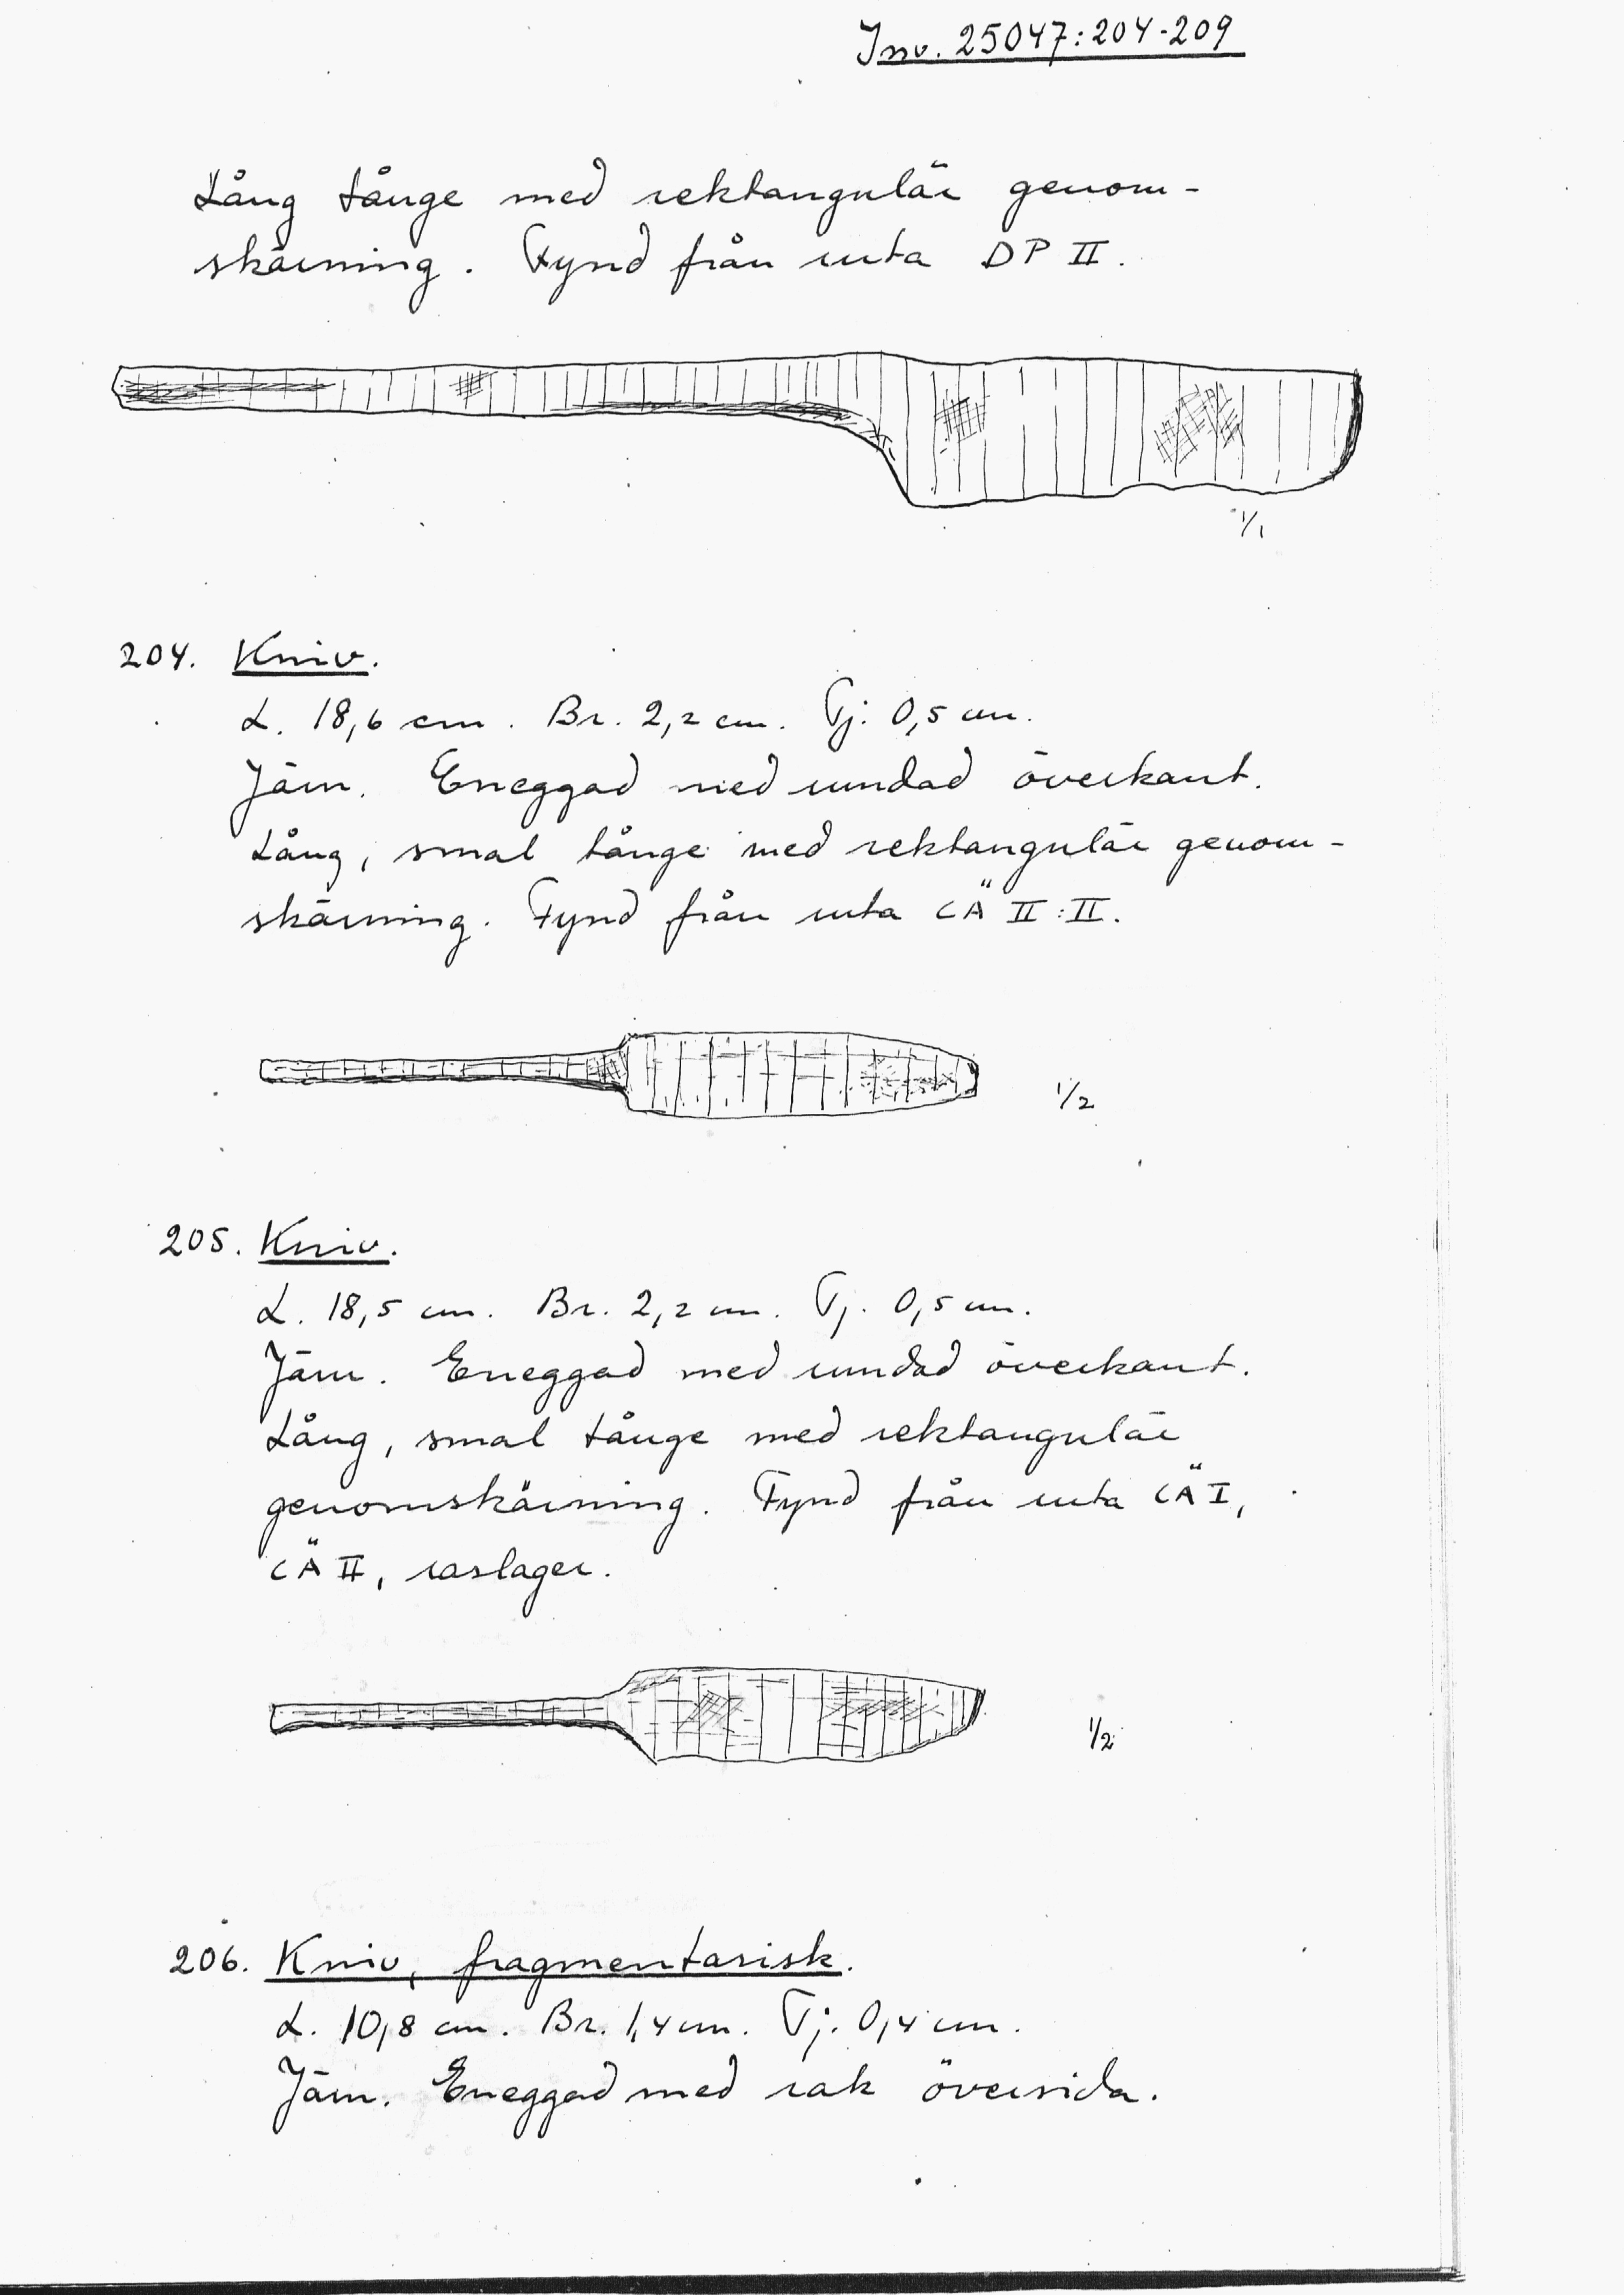 Inv. 25047:204-209
Lång tånge med rektangulär genom-
skärning. Fynd från ruta DP II.
1/1
204. Kniv.
L. 18,6 cm. Br. 2,2 cm. Tj. 0,5 cm.
Järn. Eneggad med rundad överkant.
Lång, smal tånge med rektangulär genom-
skärning. Fynd från ruta CÄ II:II.
1/2
205. Kniv.
L. 18,5 cm. Br. 2,2 cm. Tj. 0,5 cm.
Järn. Eneggad med rundad överkant.
Lång, smal tånge med rektangulär
genomskärning. Fynd från ruta CÄ I,
CÄ II, raslager.
1/2
206. Kniv, fragmentarisk.
L. 10,8 cm. Br. 1,4 cm. Tj. 0,4 cm.
Järn. Eneggad med rak översida.